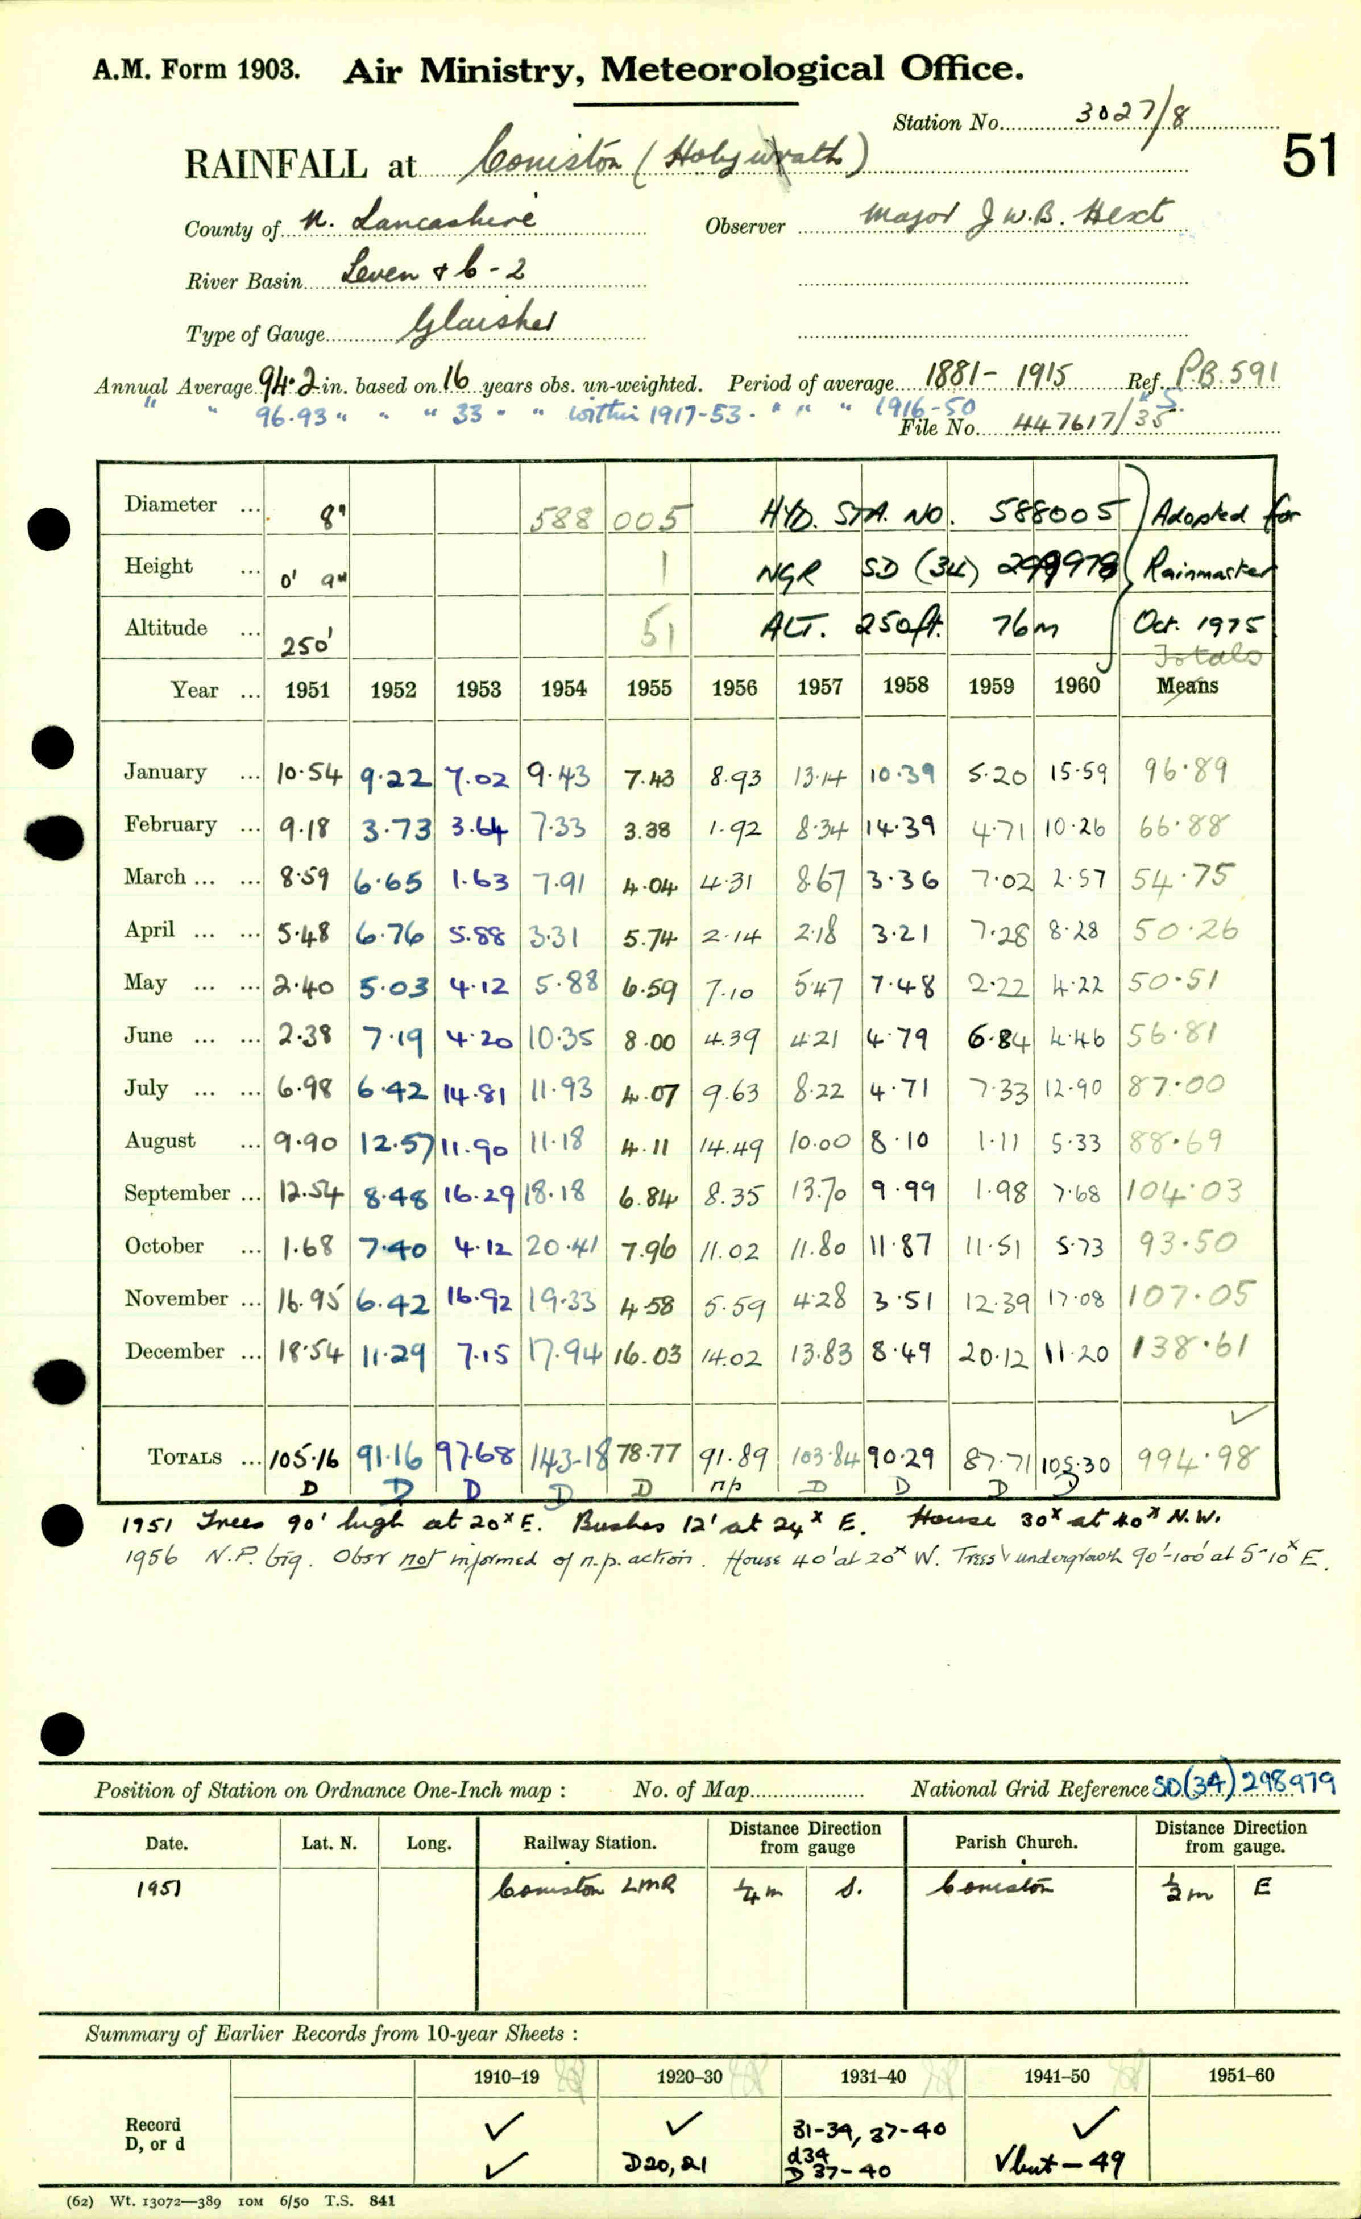 A.M. Form 1903. Air Ministry, Meteorological Office.
Station No. 3027/8
51
RAINFALL at Coniston (Holywrath)
County of N. Lancashire Observer Major J W.B. Hext
River Basin Leven & C-2
Type of Gauge Glaisher
Annual Average 94.2 in. based on 16 years obs. un-weighted. Period of average 1881 - 1915 Ref. P.B. 591
" " 96.93 " " " 33 " " within 1917-53. " " " 1916-50
File No. 447617/35
Diameter ... 8" 588 005 HYD. STA. NO. 588005 Adopted for
Height ... 0' 9" 1 NGR SD (34) 299978 Rainmaster
Altitude ... 250' 51 ALT. 250ft. 76m Oct. 1975
Totals
Year ... 1951 1952 1953 1954 1955 1956 1957 1958 1959 1960 Means
January ... 10.54 9.22 7.02 9.43 7.43 8.93 13.14 10.39 5.20 15.59 96.89
February ... 9.18 3.73 3.64 7.33 3.38 1.92 8.34 14.39 4.71 10.26 66.88
March ... ... 8.59 6.65 1.63 7.91 4.04 4.31 8.67 3.36 7.02 2.57 54.75
April ... ... 5.48 6.76 5.88 3.31 5.74 2.14 2.18 3.21 7.28 8.28 50.26
May ... ... 2.40 5.03 4.12 5.88 6.59 7.10 5.47 7.48 2.22 4.22 50.51
June ... ... 2.38 7.19 4.20 10.35 8.00 4.39 4.21 4.79 6.84 4.46 56.81
July ... ... 6.98 6.42 14.81 11.93 4.07 9.63 8.22 4.71 7.33 12.90 87.00
August ... 9.90 12.57 11.90 11.18 4.11 14.49 10.00 8.10 1.11 5.33 88.69
September ... 12.54 8.48 16.29 18.18 6.84 8.35 13.70 9.99 1.98 7.68 104.03
October ... 1.68 7.40 4.12 20.41 7.96 11.02 11.80 11.87 11.51 5.73 93.50
November ... 16.95 6.42 16.92 19.33 4.58 5.59 4.28 3.51 12.39 17.08 107.05
December ... 18.54 11.29 7.15 17.94 16.03 14.02 13.83 8.49 20.12 11.20 138.61
TOTALS ... 105.16 91.16 97.68 143.18 78.77 91.89 103.84 90.29 87.71 105.30 994.98
D D D D D n/p D D D D
1951 Trees 90' high at 20x E. Bushes 12' at 24x E. House 30x at 40x N.W.
1956 N.P. big. Obsr not informed of n.p. action. House 40' at 20x W. Trees & undergrowth 90'-100' at 5-10x E.
Position of Station on Ordnance One-Inch map : No. of Map National Grid Reference SD(34) 298979
Date. Lat. N. Long. Railway Station. Distance Direction from gauge Parish Church. Distance Direction from gauge.
1951 Coniston LMR 1/4 m S. Coniston 1/2 m E
Summary of Earlier Records from 10-year Sheets :
1910–19 1920–30 1931–40 1941–50 1951–60
Record ✓ ✓ 31-34, 37-40 ✓
D, or d ✓ D20, 21 d34 D 37-40 √ but - 49
(62) Wt. 13072—389 10M 6/50 T.S. 841